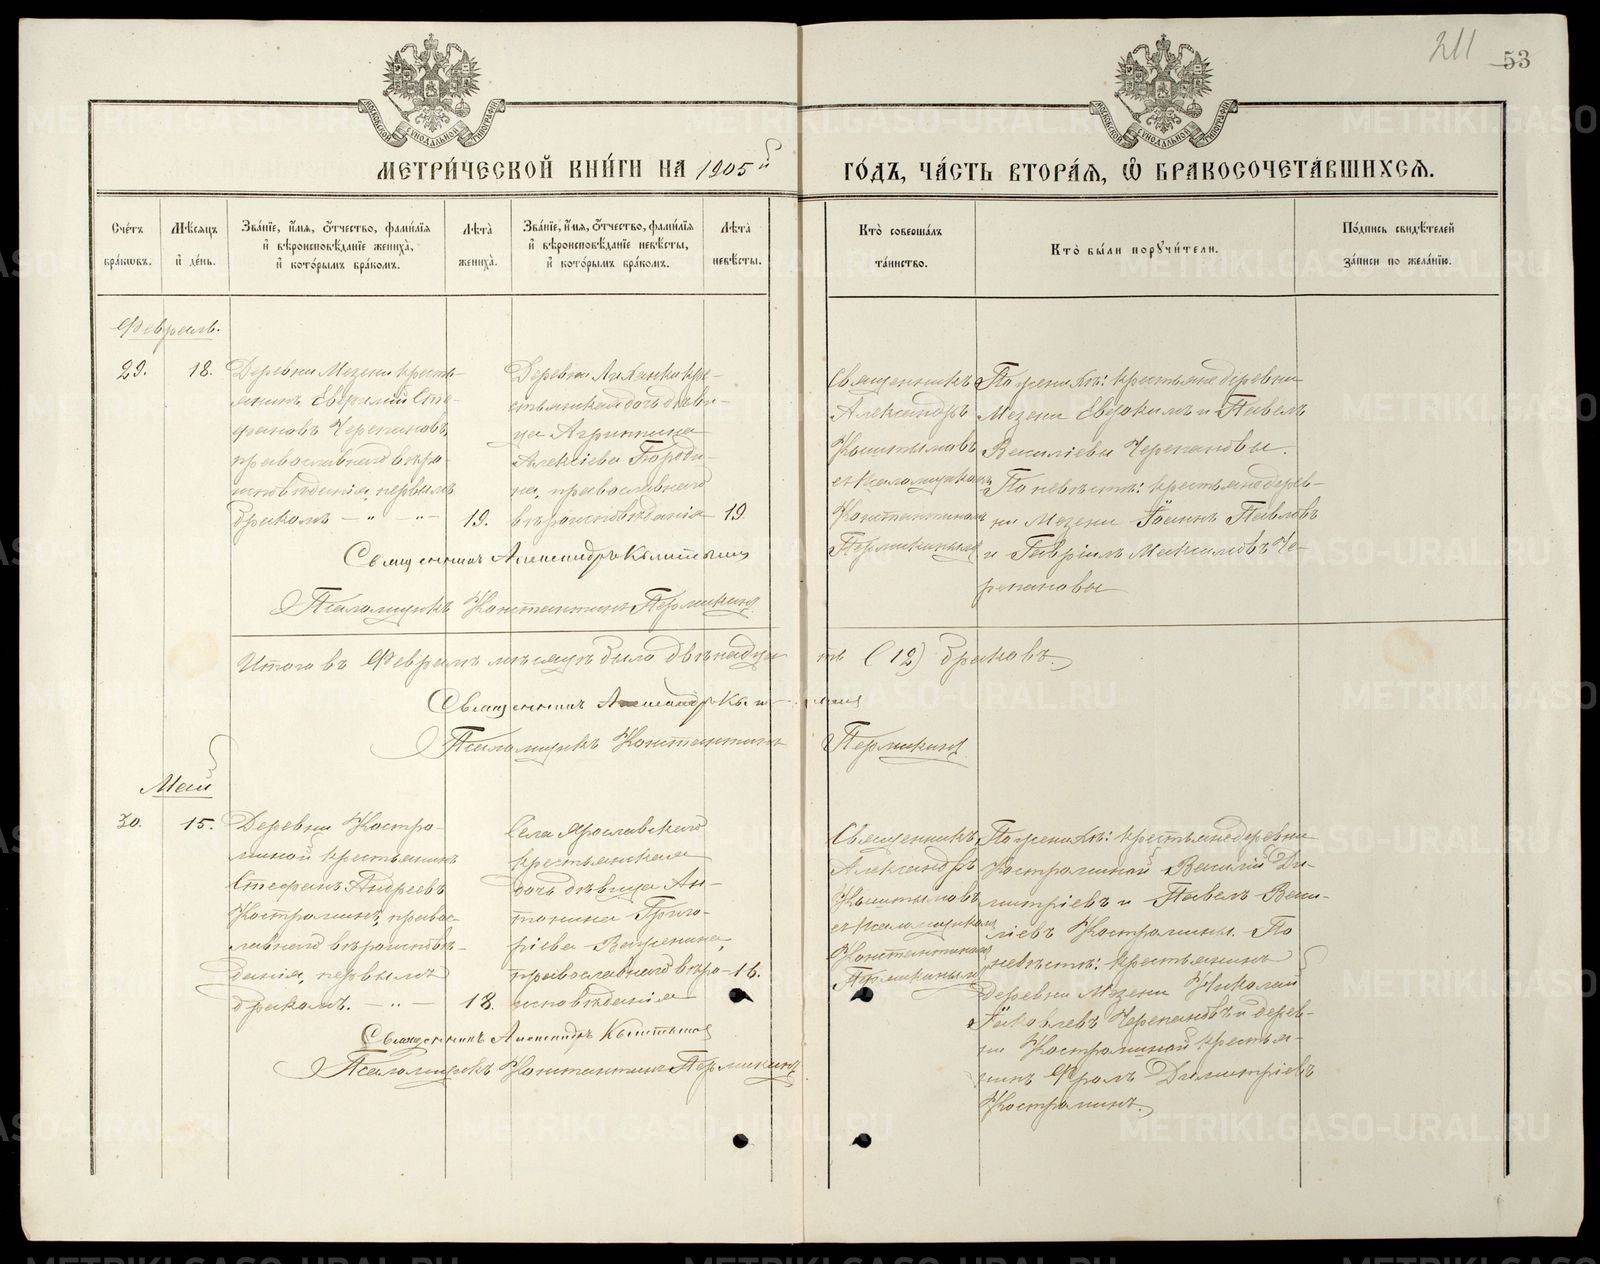 211 53
МОСКОВСКОЙ СУНОДАЛЬНОЙ ТИПОГРАФІИ
МОСКОВСКОЙ СУНОДАЛЬНОЙ ТИПОГРАФІИ
МЕТРИ́ЧЕСКОЙ КНИ́ГИ НА 1905й
ГО́ДЪ, ЧА́СТЬ ВТОРА́Я, Ѽ БРАКОСОЧЕТА́ВШИХСѦ.
Сче́тъ
бра́кѡвъ.
Мѣ́сяцъ
и҆ де́нь.
Зва́нїе, и҆́мѧ, ѻ҆́тчество, фами́лїѧ
и҆ вѣроисповѣ́данїе жениха̀,
и҆ кото́рымъ бра́комъ.
Лѣ́та
жениха̀.
Зва́нїе, и҆́мѧ, ѻ҆́тчество, фами́лїѧ
и҆ вѣроисповѣ́данїе невѣ́сты,
и҆ кото́рымъ бра́комъ.
Лѣ́та
невѣ́сты.
Кто̀ соверша́лъ
та́инство.
Кто̀ бы́ли порꙋчи́тели.
По́дпись свидѣ́телей
за́писи по жела́нїю.
Февраль.
29.
18.
Деревни Мезени кресть-
янинъ Евѳимій Сте-
фановъ Черепановъ,
православнаго вѣро-
исповѣданія, первымъ
бракомъ — „ —
19.
кре-
стьянская дочь дѣви-
ца Агриппина
Алексіева Бороди-
на, православнаго
вѣроисповѣданія
19.
Священникъ
Александръ
Кыштымовъ
съ псаломщикомъ
Константиномъ
Пермикинымъ
По женихѣ: крестьяне деревни
Мезени Евдокимъ и Павелъ
Василіевы Черепановы.
По невѣстѣ: крестьяне дерев-
ни Мезени Іоаннъ Павловъ
и Гавріилъ Максимовъ Че-
репановы
Священникъ Александръ Кыштымовъ
Псаломщикъ Константинъ Пермикинъ
Итого въ Февралѣ мѣсяцѣ было двѣнадца ть (12) браковъ.
Священникъ Александръ Кыштымовъ
Псаломщикъ Константинъ Пермикинъ
Май
30.
15.
Деревни Костро-
миной крестьянинъ
Стефанъ Андреевъ
Костроминъ, правос-
лавнаго вѣроисповѣ-
данія, первымъ
бракомъ. — „ —
18.
Села Ярославскаго
крестьянская
дочь дѣвица Ан-
тонина Григо-
ріева Важенина,
православнаго вѣро-
исповѣданія
16.
Священникъ
Александръ
Кыштымовъ
съ псаломщикомъ
Константиномъ
Пермикинымъ
По женихѣ: крестьяне деревни
Костроминой Василій Ди-
митріевъ и Павелъ Васи-
ліевъ Костромины. По
невѣстѣ: крестьянинъ
деревни Мезени Николай
Іаковлевъ Черепановъ и дерев-
ни Костроминой крестья-
нинъ Фролъ Димитріевъ
Костроминъ.
Священникъ Александръ Кыштымовъ
Псаломщикъ Константинъ Пермикинъ
METRIKI.GASO-URAL.RU